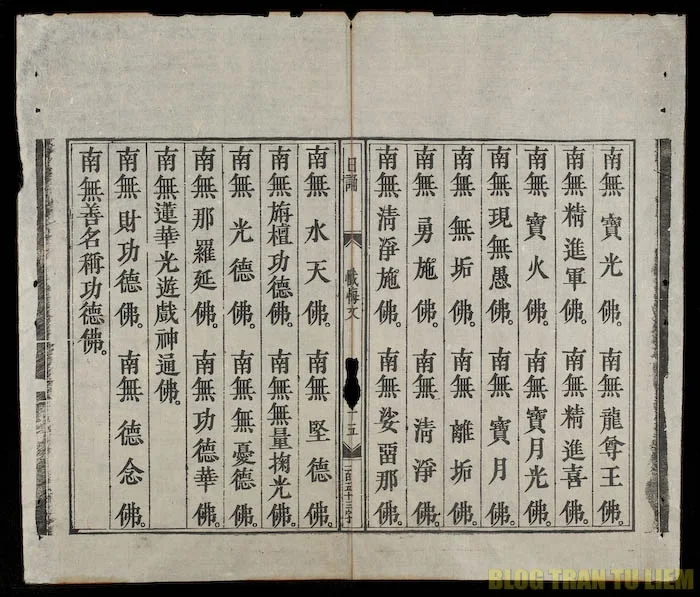 南無寶光佛。南無龍尊王佛。
南無精進軍佛。南無精進喜佛。
南無寶火佛。南無寶月光佛。
南無現無愚佛。南無寶月佛。
南無無垢佛。南無離垢佛。
南無勇施佛。南無清淨佛。
南無清淨施佛。南無娑畱那佛。
日誦 懺悔文 十五
南無水天佛。南無堅德佛。
南無旃檀功德佛。南無無量掬光佛。
南無光德佛。南無無憂德佛。
南無那羅延佛。南無功德華佛。
南無蓮華光遊戲神通佛。
南無財功德佛。南無德念佛。
南無善名稱功德佛。
BLOG TRAN TU LIEM